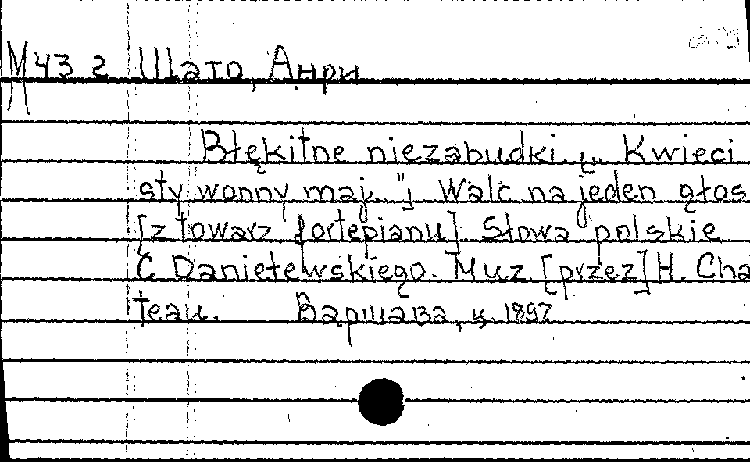 Муз 2 Шато, Анри
Błękitne niezabudki. [„Kwieci
sty wonny maj..."] Walc na jeden głos
[z towarz fortepianu] Słowa polskie
C Daniełewskiego. Muz [przez] H. Cha
teau. Варшава, ц. 1897